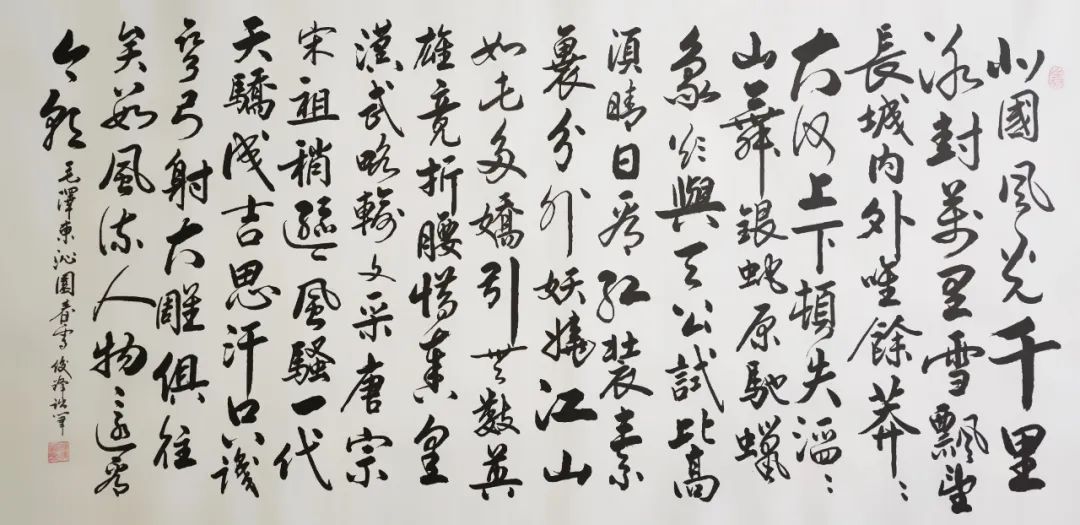 北國风光千里
冰封萬里雪飄望
長城内外唯餘莽〻
大河上下頓失滔〻
山舞銀蛇原馳蠟
象欲與天公試比高
須晴日看紅裝素
裹分外妖嬈江山
如此多嬌引無數英
雄竟折腰惜秦皇
漢武略輸文采唐宗
宋祖稍遜風騷一代
天驕成吉思汗只識
彎弓射大雕俱往
矣數風流人物還看
今朝
毛澤東沁園春雪